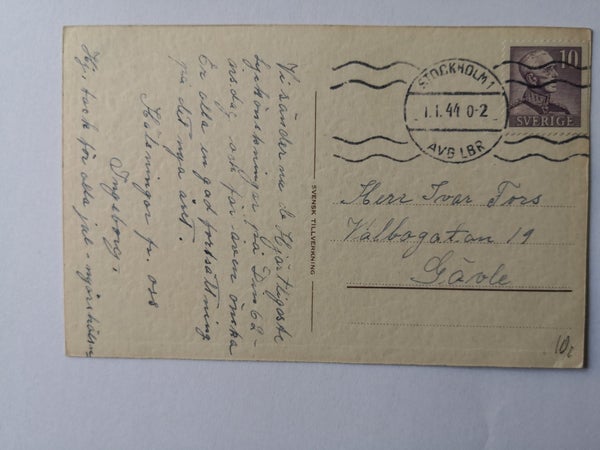 Vi sänder nu de Hjärtligaste
lyckönskningar på Din 62-
årsdag, och får även önska
Er alla en god fortsättning
på det nya året.
Hälsningar fr. oss
Ingeborg.
Hej, tack för alla jul- nyårshälsn
SVENSK TILLVERKNING
STOCKHOLM 1
1.1.44 0-2
AVG LBR
10
SVERIGE
Herr Ivar Fors
Valbogatan 19
Gävle